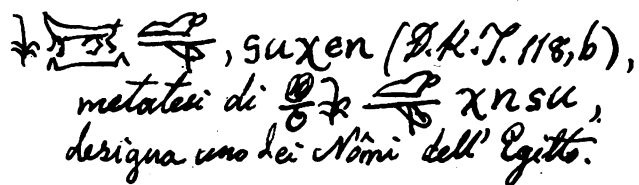 , suχen (D.K.T. 118, b),
metatesi di χnsu,
designa uno dei Nômi dell' Egitto.